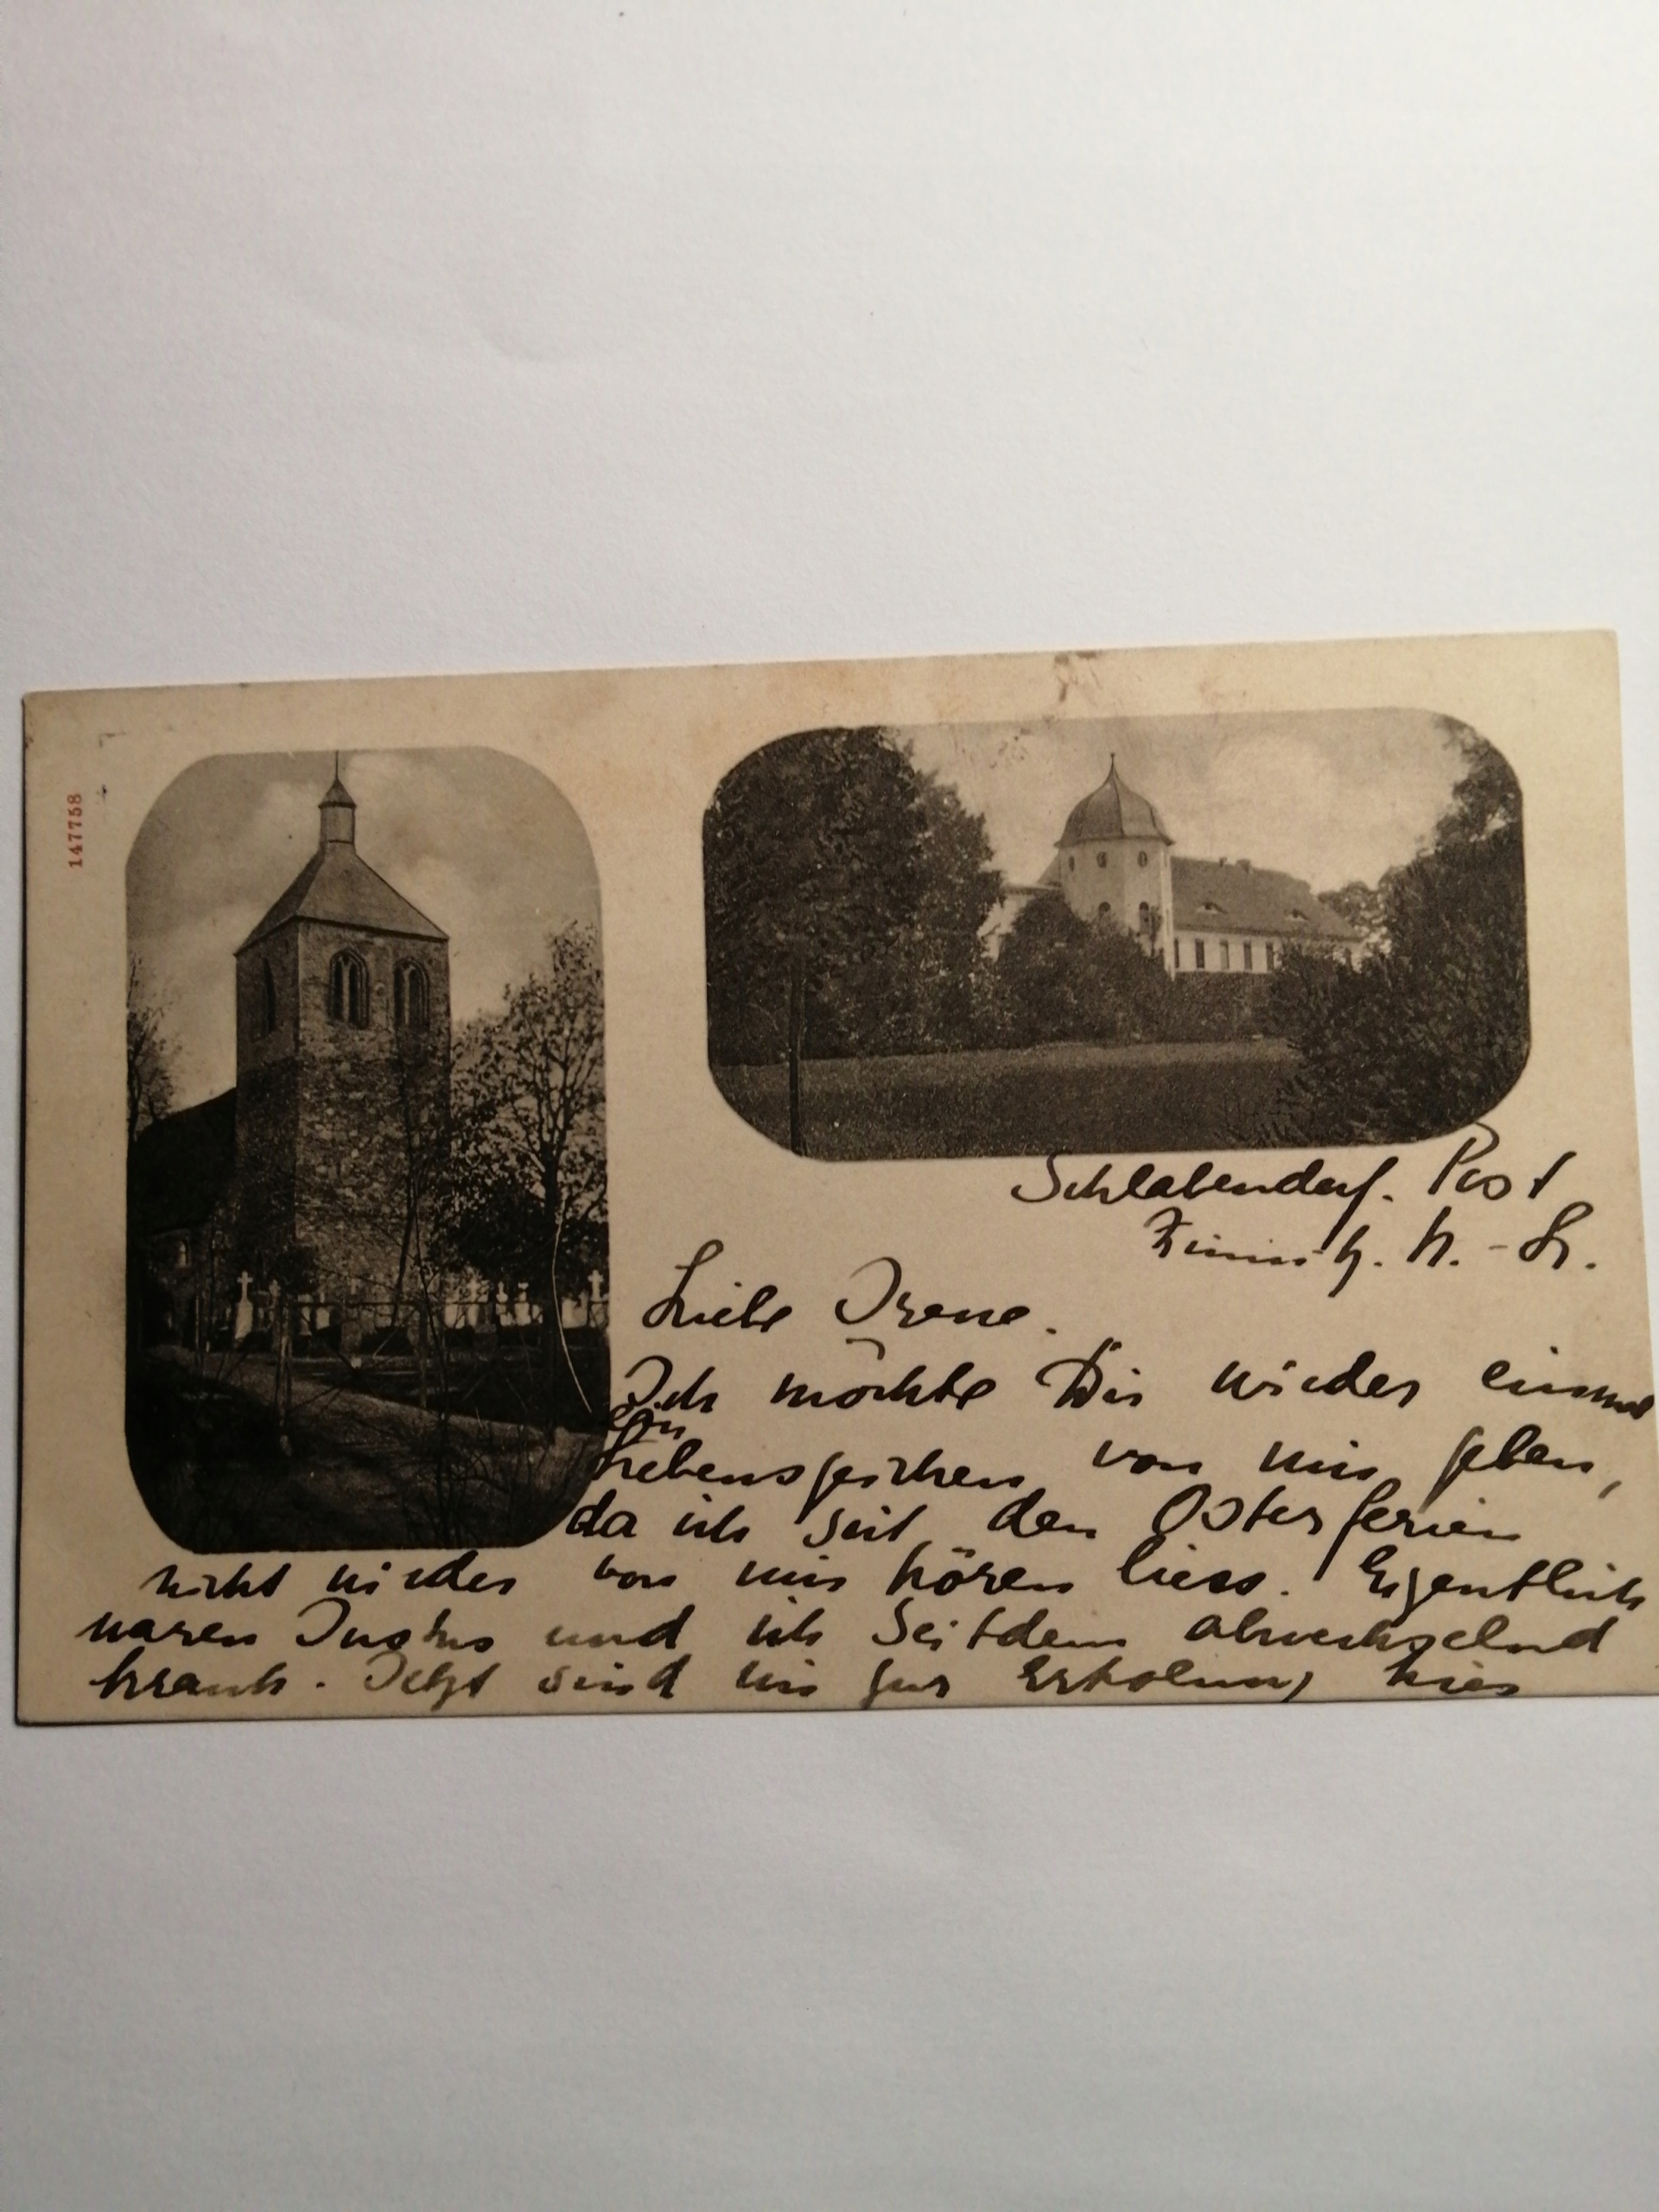 147758
Schlabendorf. Post
N.-L.
Liebe Irene.
Ich möchte Dir wieder einmal
ein
Lebenszeichen von mir geben,
da ich seit den Osterferien
nicht wieder von mir hören liess. Eigentlich
waren Justus und ich seitdem abwechselnd
krank. Jetzt sind wir zur Erholung hier